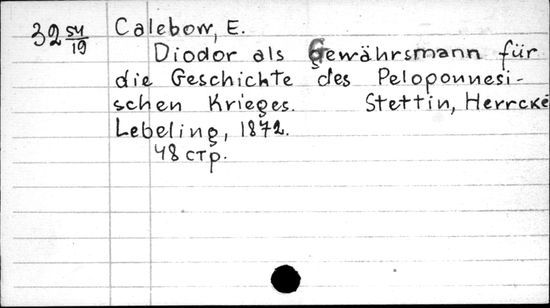 32 54/19 Calebow, E.
Diodor als Gewährsmann für
die Geschichte des Peloponnesi-
schen Krieges. Stettin, Herrcke
Lebeling, 1872.
48 стр.